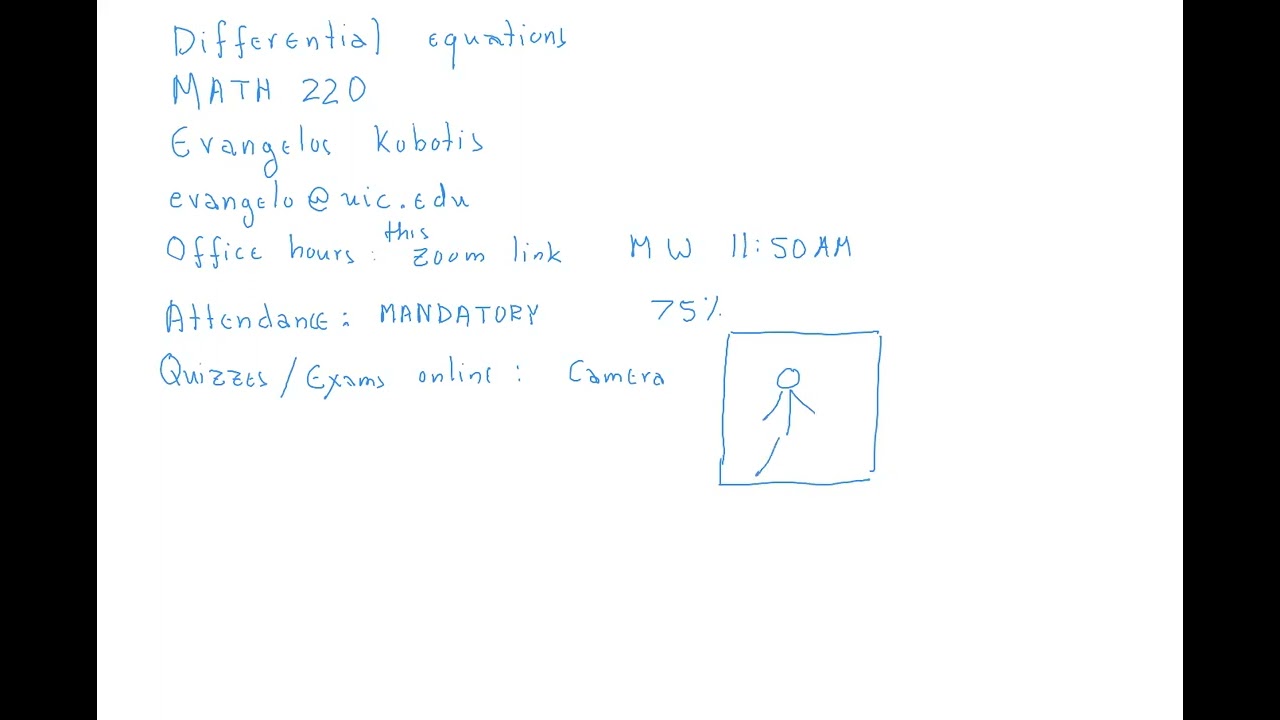 Differential equations
MATH 220
Evangelos Kobotis
evangelo@uic.edu
Office hours: this zoom link MW 11:50AM
Attendance: MANDATORY 75%
Quizzes/Exams online: Camera